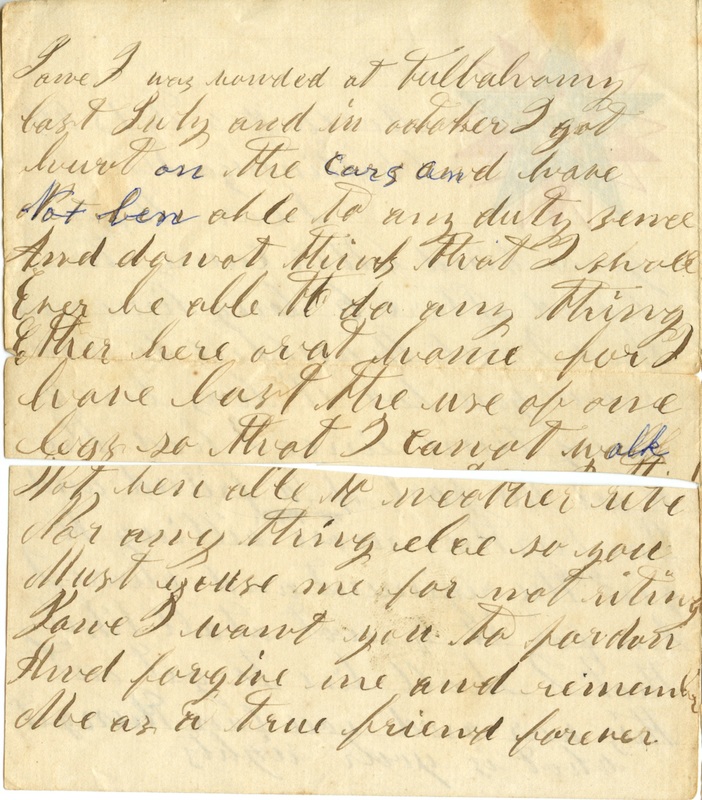 Lowe I was wonded at Tullahomy
last July and in october I got
hurt on the cars and have
Not ben able to any duty sence
And do not think that I shall
Ever be able to do any thing
Ether here or at home for I
have lost the use of one
legs so that I cannot walk
Not ben able to neother rite
Nor any thing else so you
Must youse me for not riting
Lowe I want you to pardon
And forgive me and remember
Me as a true friend forever